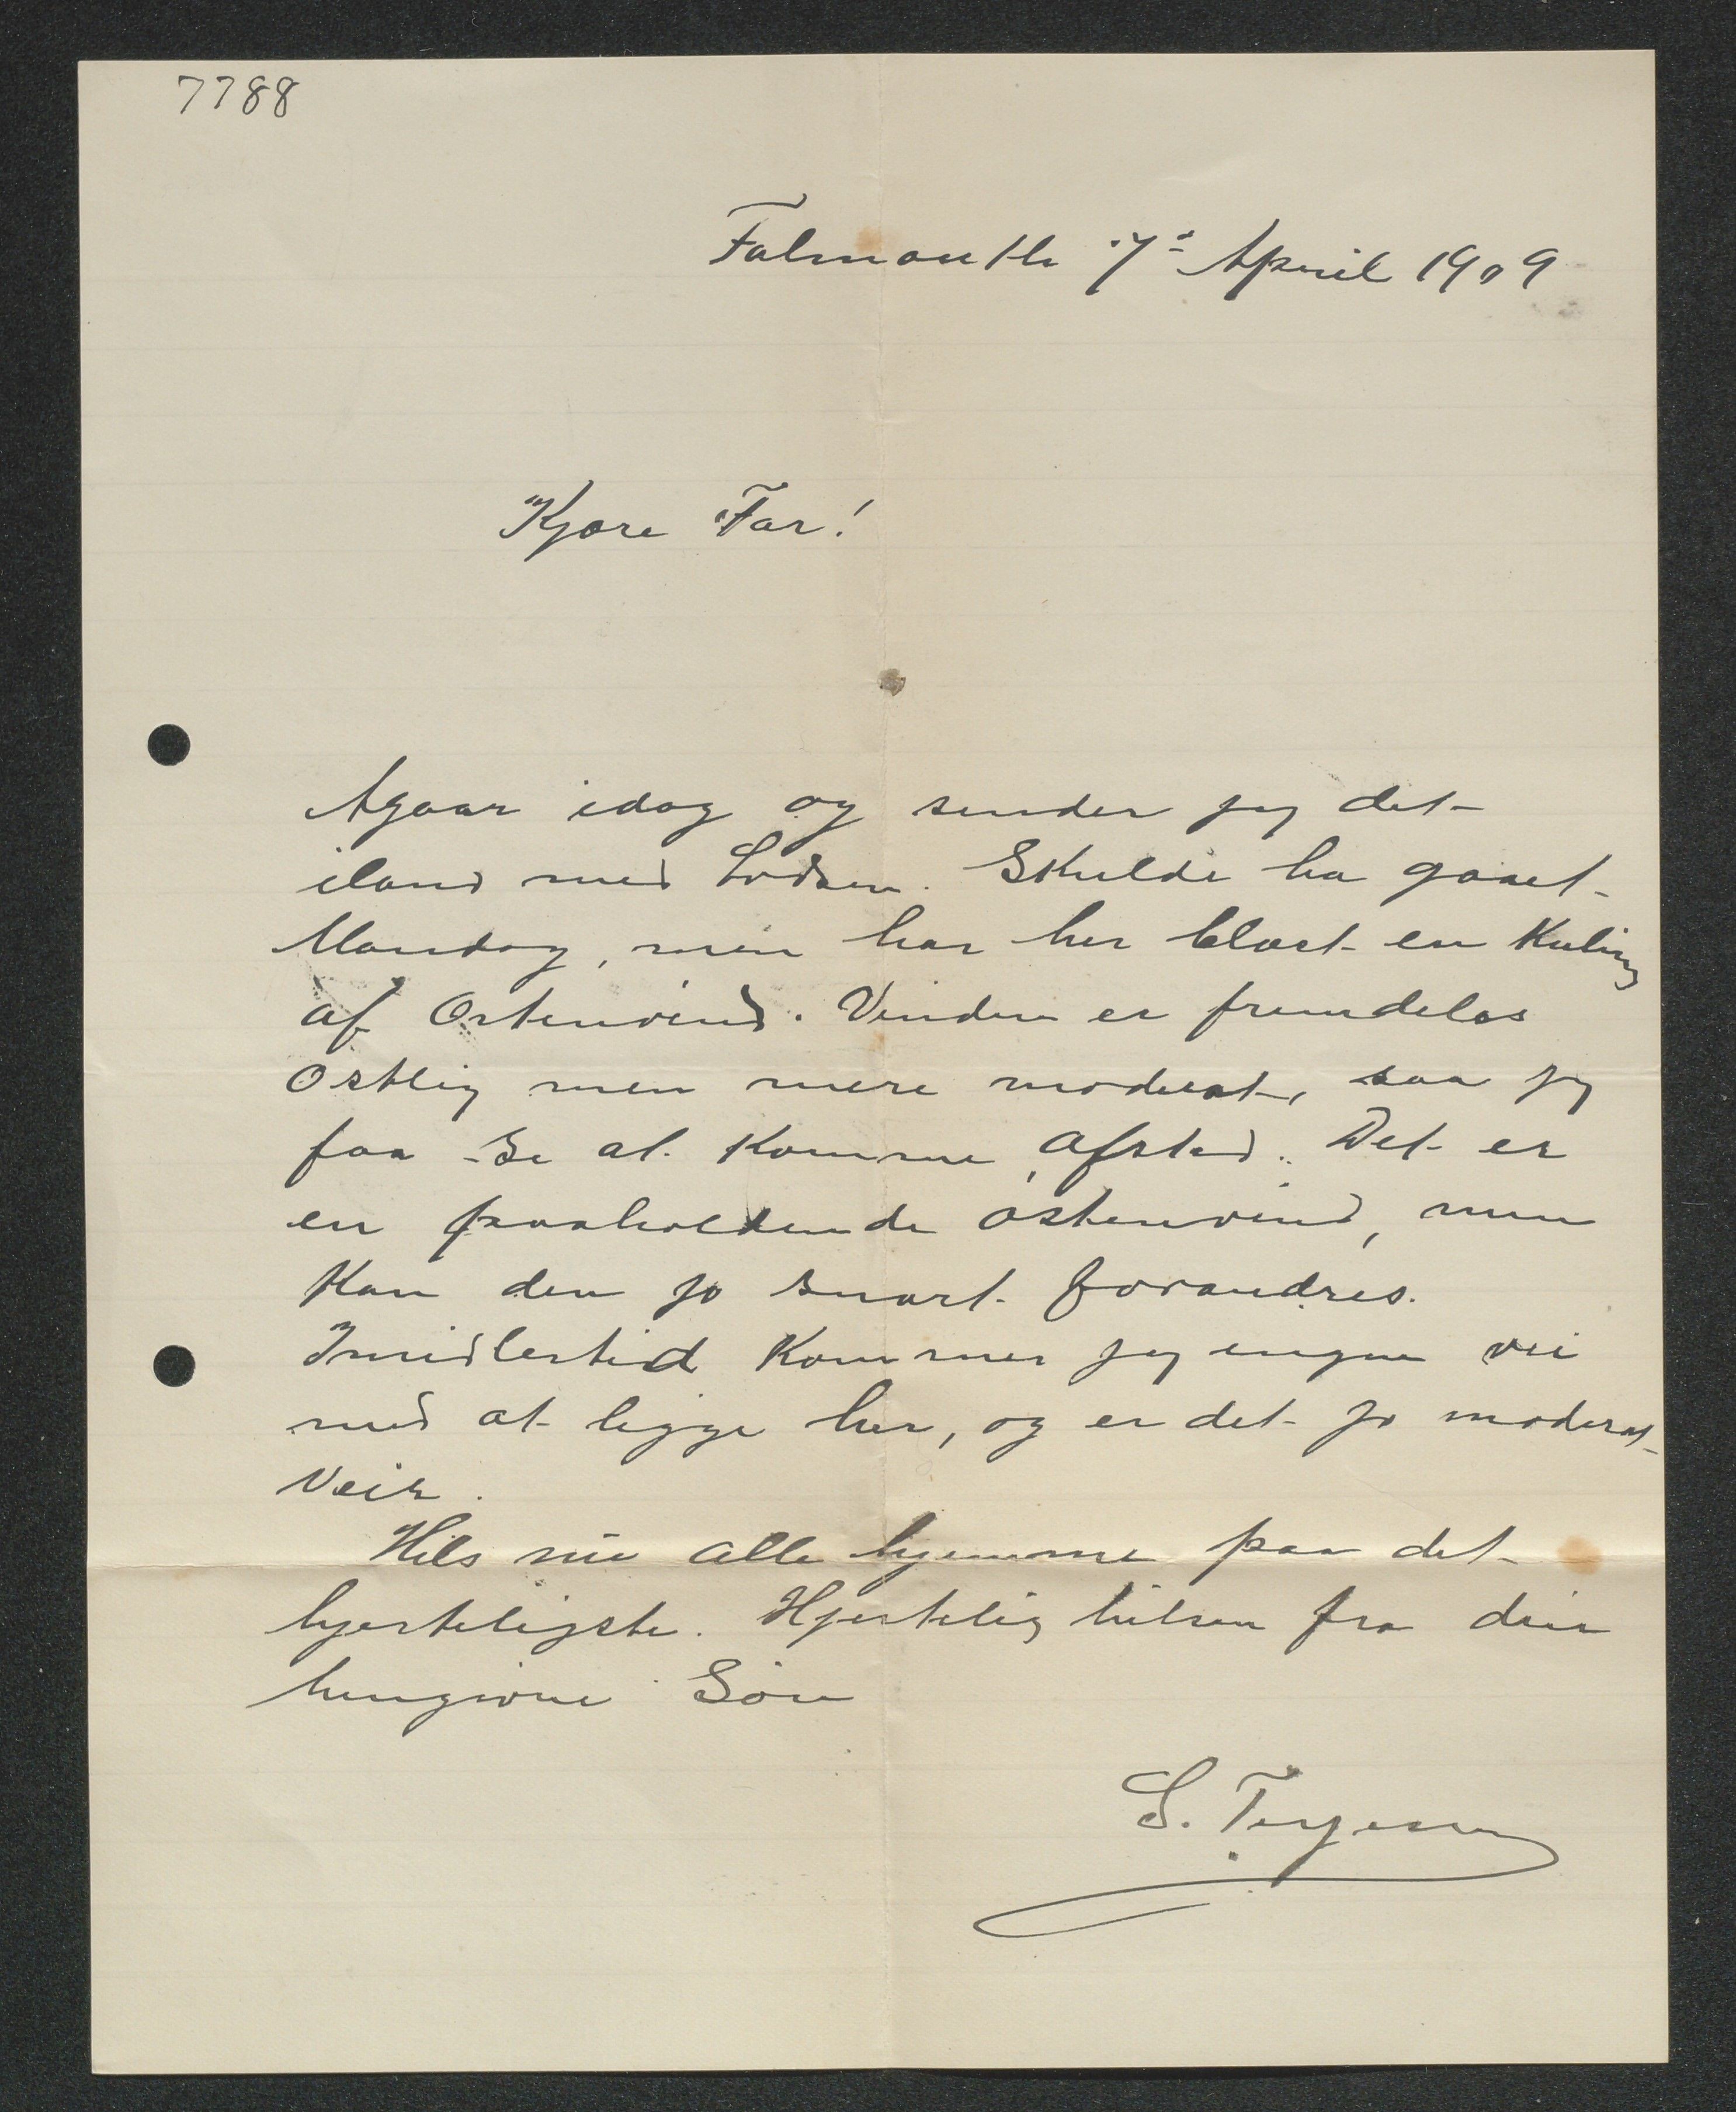 7788
Falmouth 7de April 1909
Kjære Far!
Agaar idag og sender jeg det
iland med Lodsen. Skulde ha gaaet
Mandag, men har her blæst en Kuling
af Ostenvind. Vinden er fremdeles
Ostlig men mere moderat, saa jeg
faa se at komme afsted. Det er
en paaholdende østenvind, men
kan den jo snart forandres.
Imidlertid kommer jeg ingen vei
med at ligge her, og er det jo moderat
Veir.
Hils nu alle hjemme paa det
hjerteligste. Hjertelig hilsen fra din
hengivne Søn
S. Terjesen